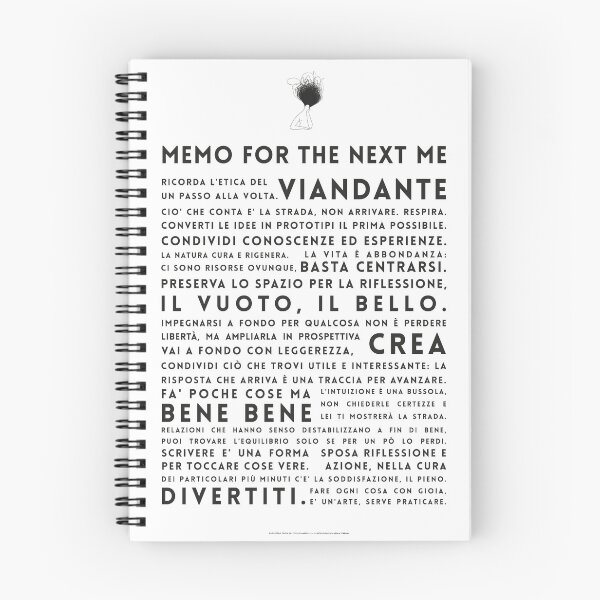 MEMO FOR THE NEXT ME
RICORDA L'ETICA DEL
UN PASSO ALLA VOLTA. VIANDANTE
CIO' CHE CONTA E' LA STRADA, NON ARRIVARE. RESPIRA.
CONVERTI LE IDEE IN PROTOTIPI IL PRIMA POSSIBILE.
CONDIVIDI CONOSCENZE ED ESPERIENZE.
LA NATURA CURA E RIGENERA. LA VITA È ABBONDANZA:
CI SONO RISORSE OVUNQUE, BASTA CENTRARSI.
PRESERVA LO SPAZIO PER LA RIFLESSIONE,
IL VUOTO, IL BELLO.
IMPEGNARSI A FONDO PER QUALCOSA NON È PERDERE
LIBERTÀ, MA AMPLIARLA IN PROSPETTIVA
VAI A FONDO CON LEGGEREZZA, CREA
CONDIVIDI CIÒ CHE TROVI UTILE E INTERESSANTE: LA
RISPOSTA CHE ARRIVA È UNA TRACCIA PER AVANZARE.
FA' POCHE COSE MA
BENE BENE
L'INTUIZIONE È UNA BUSSOLA,
NON CHIEDERLE CERTEZZE E
LEI TI MOSTRERÀ LA STRADA.
RELAZIONI CHE HANNO SENSO DESTABILIZZANO A FIN DI BENE,
PUOI TROVARE L'EQUILIBRIO SOLO SE PER UN PÒ LO PERDI.
SCRIVERE E' UNA FORMA SPOSA RIFLESSIONE E
PER TOCCARE COSE VERE. AZIONE, NELLA CURA
DEI PARTICOLARI PIÙ MINUTI C'E' LA SODDISFAZIONE, IL PIENO.
DIVERTITI. FARE OGNI COSA CON GIOIA,
E' UN'ARTE, SERVE PRATICARE.